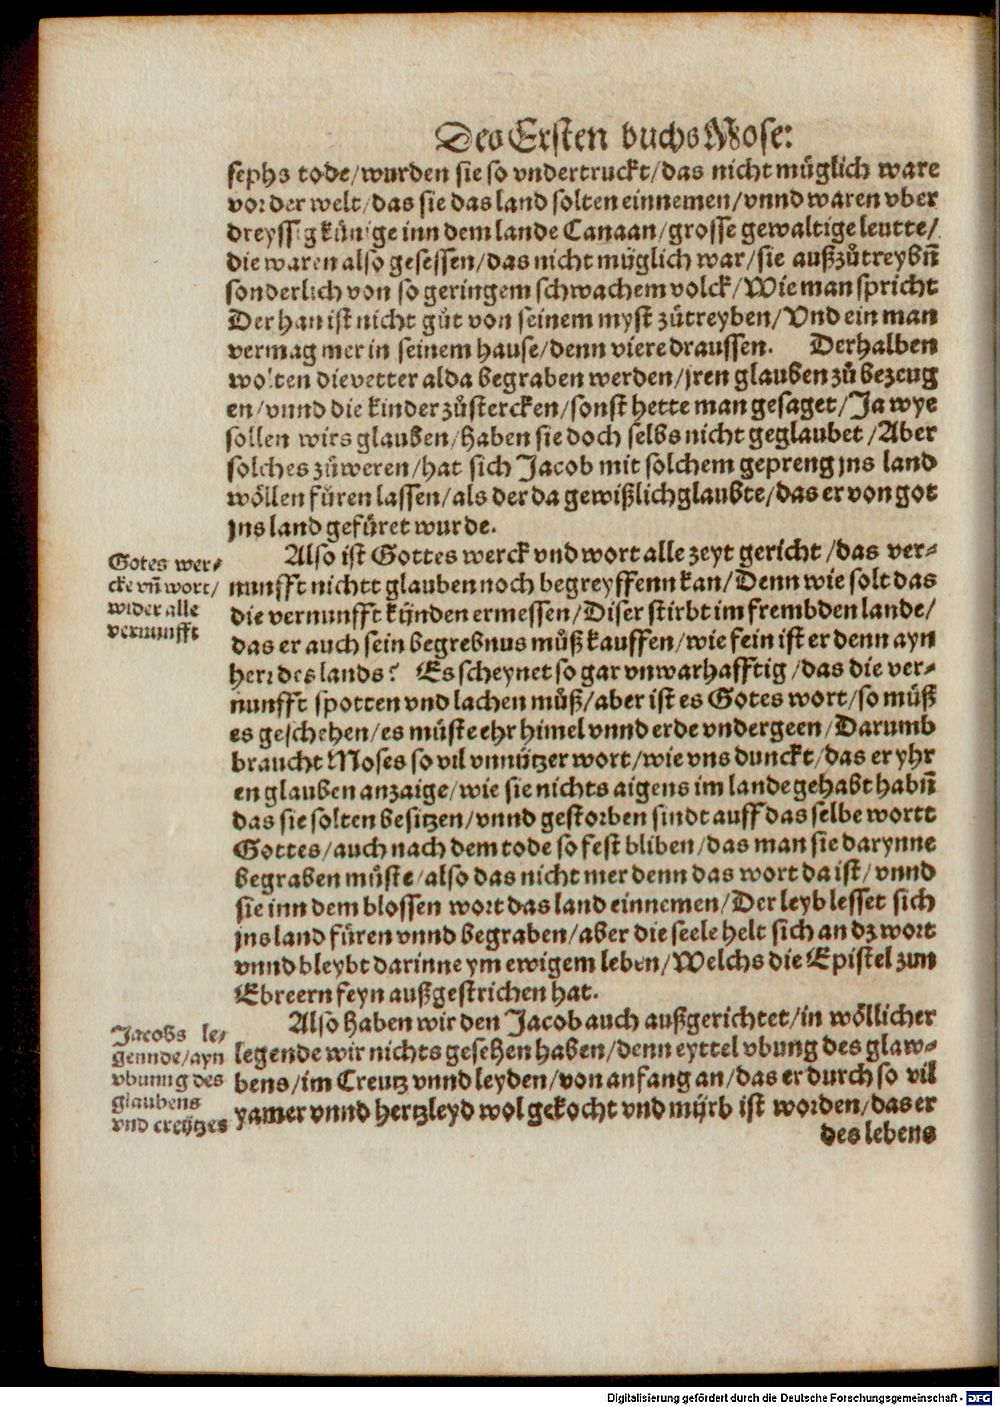 Des Ersten buchs Mose:
sephs tode/wurden sie so vndertruckt/das nicht müglich ware
vor der welt/das sie das land solten einnemen/vnnd waren vber
dreyssig künige inn dem lande Canaan/grosse gewaltige leutte/
die waren also gesessen/das nicht müglich war/sie außzůtreybñ
sonderlich von so geringem schwachem volck/Wie man spricht
Der han ist nicht gůt von seinem myst zůtreyben/Vnd ein man
vermag mer in seinem hause/denn viere draussen. Derhalben
wolten die vetter alda begraben werden/jren glauben zů bezeug
en/vnnd die kinder zůstercken/sonst hette man gesaget/Ja wye
sollen wirs glauben/haben sie doch selbs nicht geglaubet/Aber
solches zůweren/hat sich Jacob mit solchem gepreng jns land
wöllen füren lassen/als der da gewißlich glaubte/das er von got
jns land gefüret wurde.
Also ist Gottes werck vnd wort alle zeyt gericht/das ver-
nunfft nichtt glauben noch begreyffenn kan/Denn wie solt das
die vernunfft kynden ermessen/Diser stirbt im frembden lande/
das er auch sein begrebnus můß kauffen/wie fein ist er denn ayn
herr des lands? Es scheynet so gar vnwarhafftig/das die ver-
nunfft spotten vnd lachen můß/aber ist es Gotes wort/so můß
es geschehen/es můste ehr himel vnnd erde vndergeen/Darumb
braucht Moses so vil vnnützer wort/wie vns dunckt/das er yhr
en glauben anzaige/wie sie nichts aigens im lande gehabt habñ
das sie solten besitzen/vnnd gestorben sindt auff das selbe wortt
Gottes/auch nach dem tode so fest bliben/das man sie darynne
begraben můste/also das nicht mer denn das wort da ist/vnnd
sie inn dem blossen wort das land einnemen/Der leyb lesset sich
jns land füren vnnd begraben/aber die seele helt sich an dz wort
vnnd bleybt darinne ym ewigem leben/Welchs die Epistel zun
Ebreern feyn außgestrichen hat.
Also haben wir den Jacob auch außgerichtet/in wöllicher
legende wir nichts gesehen haben/denn eyttel vbung des glaw-
bens/im Creutz vnnd leyden/von anfang an/das er durch so vil
yamer vnnd hertzleyd wol gekocht vnd myrb ist worden/das er
des lebens
Gotes wer-
cke vñ wort/
wider alle
vernunfft
Jacobs le-
gennde/ayn
vbunng des
glaubens
vnd creytzes
Digitalisierung gefördert durch die Deutsche Forschungsgemeinschaft - DFG